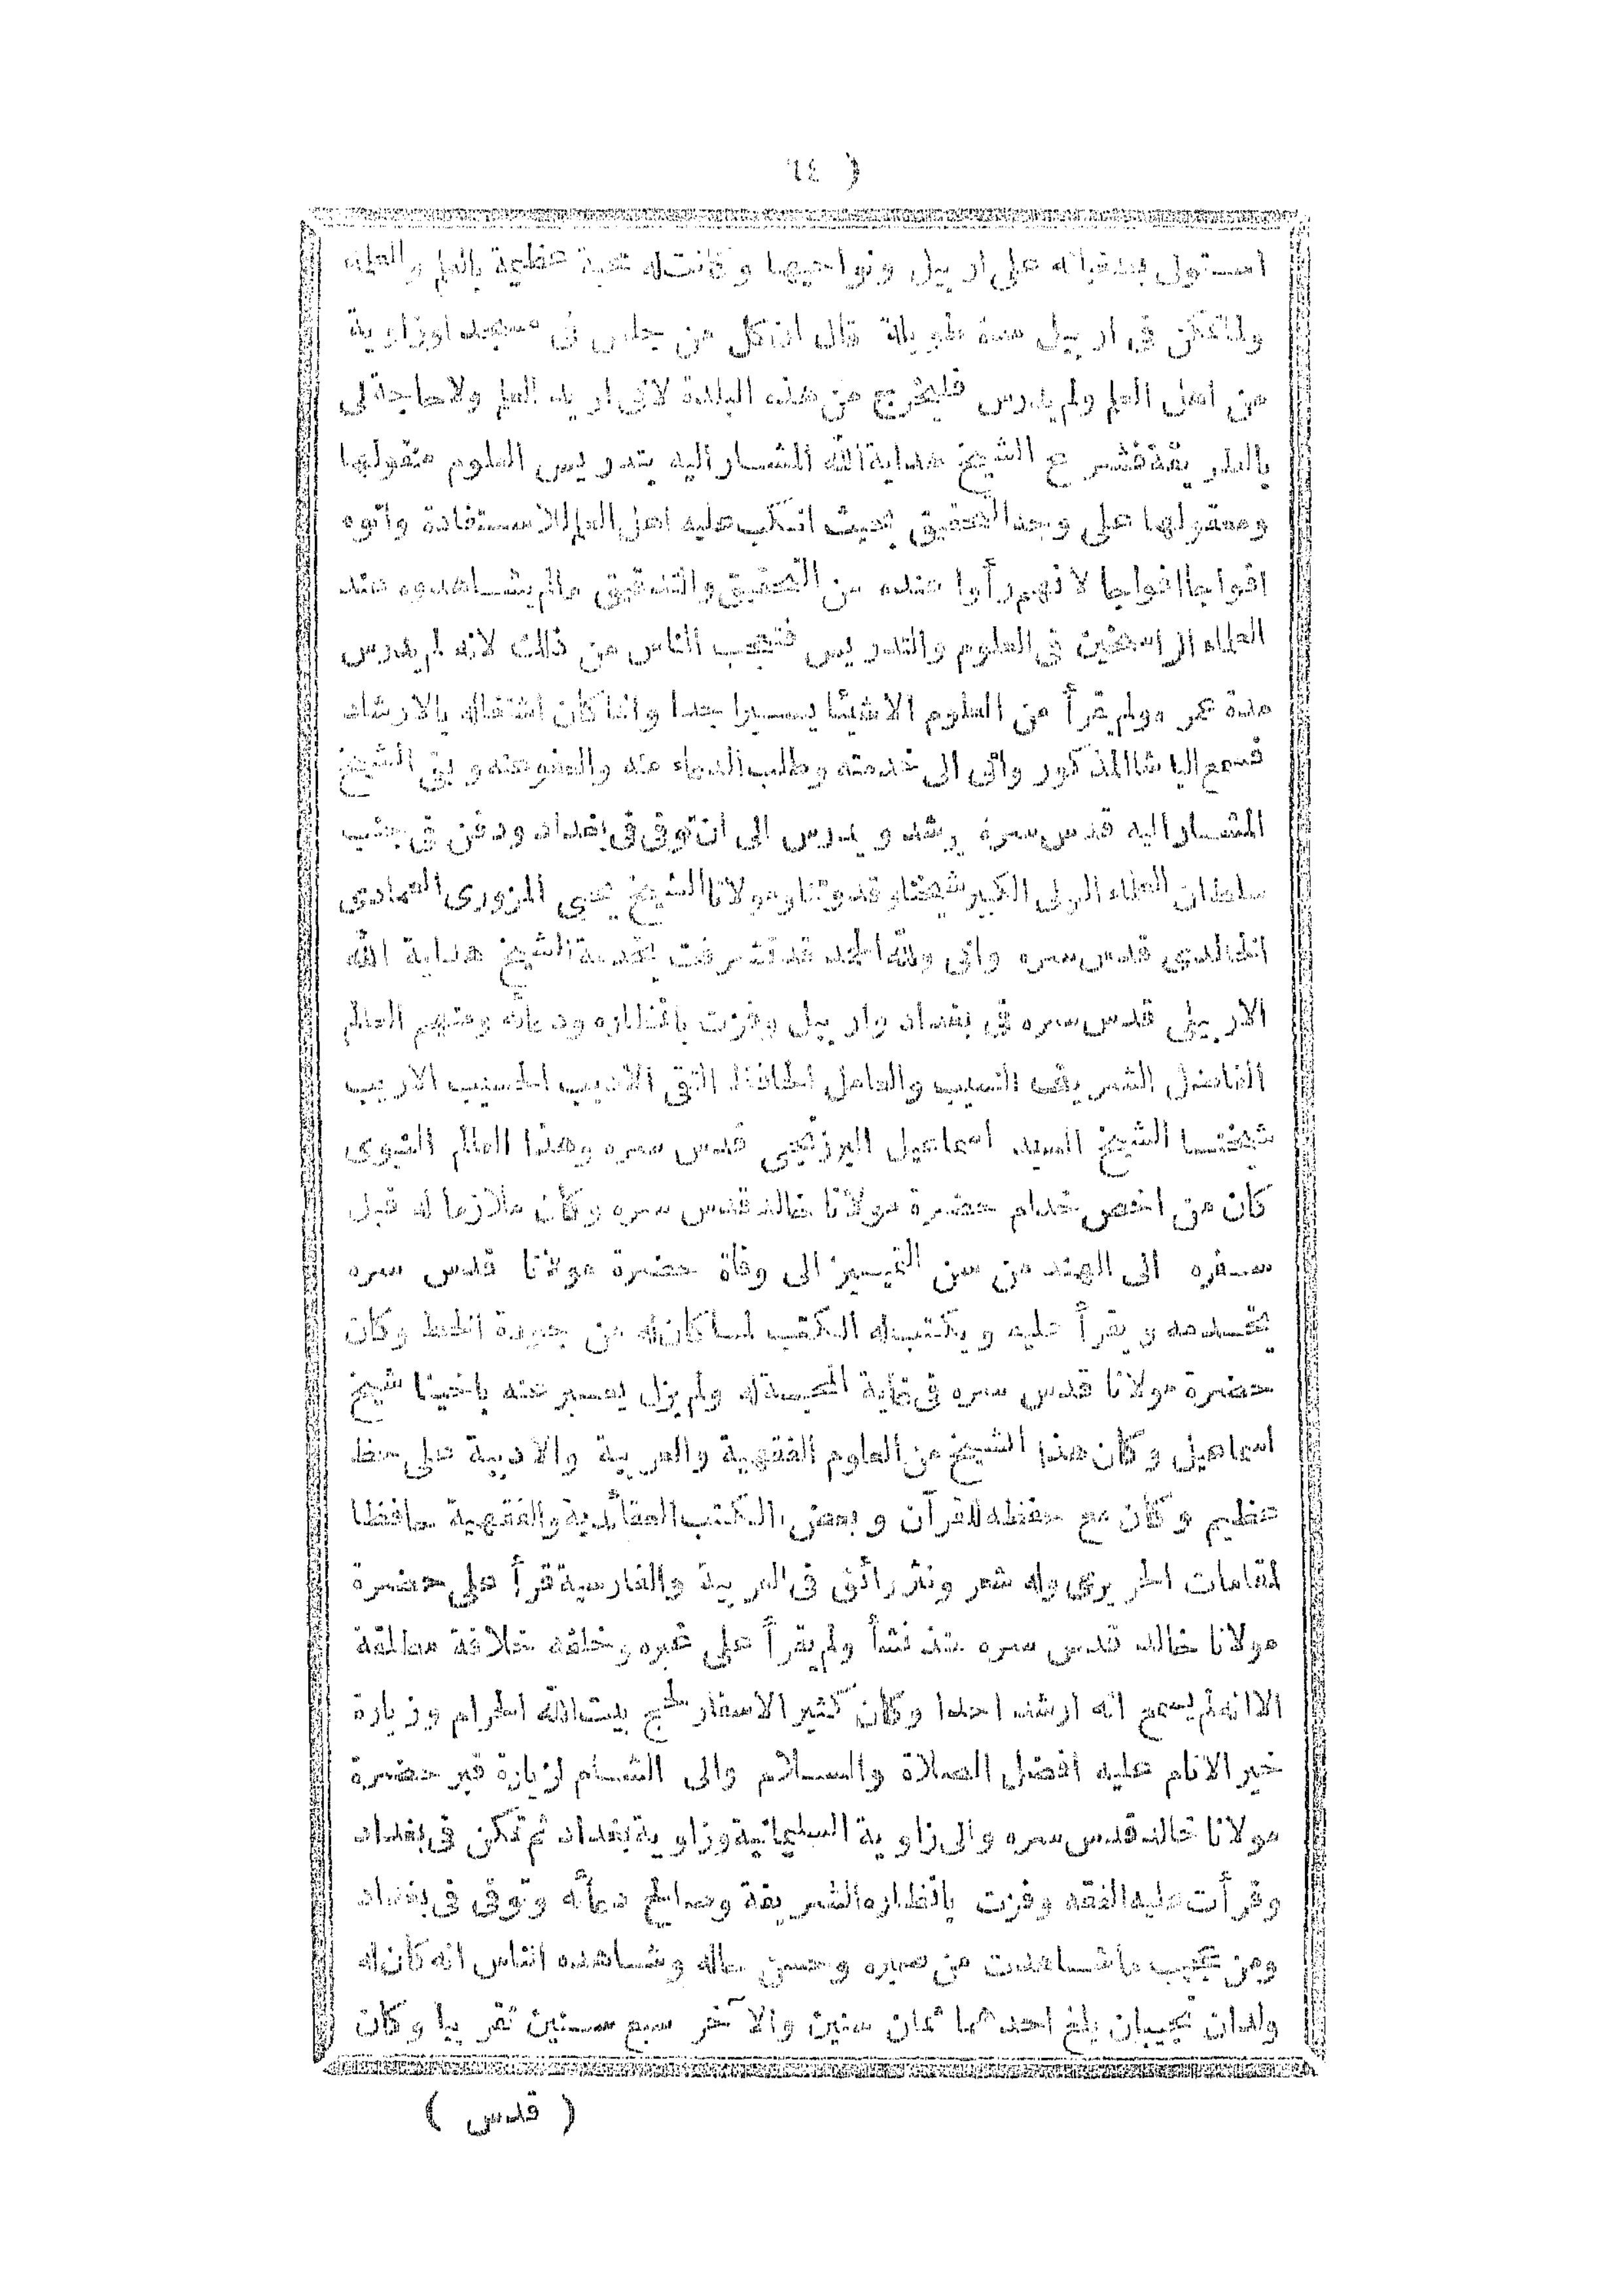 ( ٦٤
استولى على اربيل ونواحيها وكانت له محبة عظيمة بالعلم والعلماء
ولما تمكن فى اربيل مدة طويلة قال ان كل من جلس فى مسجد او زاوية
من اهل العلم ولم يدرس فليخرج من هذه البلدة لانى اريد العلم ولا حاجة لى
بالطريقة فشرع الشيخ هداية الله المشار اليه بتدريس العلوم منقولها
ومعقولها على وجه التحقيق بحيث انكب عليه اهل العلم للاستفادة واتوه
افواجا افواجا لانهم رأوا عنده من التحقيق والتدقيق مالم يشاهدوه عند
العلماء الراسخين فى العلوم والتدريس فتعجب الناس من ذلك لانه لم يدرس
مدة عمره ولم يقرأ من العلوم الا شيئا يسيرا جدا وانما كان اشتغاله بالارشاد
فسمع الباشا المذكور واتى الى خدمته وطلب الدعاء منه والعفو عنه وبقى الشيخ
المشار اليه قدس سره يرشد ويدرس الى ان توفى فى بغداد ودفن فى جنب
سلطان العلماء الولى الكبير شيخنا وقدوتنا ومولانا الشيخ يحيى المزورى العمادى
الخالدى قدس سره وانى ولله الحمد قد تشرفت بخدمة الشيخ هداية الله
الاربيلى قدس سره فى بغداد واربيل وفزت بانظاره ودعائه ومنهم العالم
الفاضل الشريف النسيب والعامل الحافظ التقى الاديب الحسيب الاريب
شيخنا الشيخ السيد اسماعيل البرزنجى قدس سره وهذا العالم النبوى
كان من اخص خدام حضرة مولانا خالد قدس سره وكان ملازما له قبل
سفره الى الهند من سن التمييز الى وفاة حضرة مولانا قدس سره
يخدمه ويقرأ عليه ويكتب له الكتب لما كان له من جودة الخط وكان
حضرة مولانا قدس سره فى غاية المحبة له ولم يزل يعبر عنه باخينا شيخ
اسماعيل وكان هذا الشيخ من العلوم الفقهية والعربية والادبية على حظ
عظيم وكان مع حفظه للقرآن وبعض الكتب العقائدية والفقهية حافظا
لمقامات الحريرى وله شعر ونثر رائق فى العربية والفارسية قرأ على حضرة
مولانا خالد قدس سره منذ نشأ ولم يقرأ على غيره وخلفه خلافة مطلقة
الا انه لم يسمع انه ارشد احدا وكان كثير الاسفار لحج بيت الله الحرام وزيارة
خير الانام عليه افضل الصلاة والسلام والى الشام لزيارة قبر حضرة
مولانا خالد قدس سره والى زاوية السليمانية وزاوية بغداد ثم تمكن فى بغداد
وقرأت عليه الفقه وفزت بانظاره الشريفة وصالح دعائه وتوفى فى بغداد
ومن عجيب ما شاهدت من صبره وحسن حاله وشاهده الناس انه كان له
ولدان نجيبان بلغ احدهما ثمان سنين والآخر سبع سنين تقريبا وكان
( قدس )